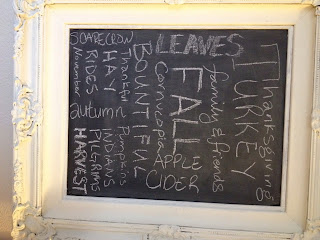 Thanksgiving
TURKEY
family & friends
LEAVES
FALL
Cornucopia
APPLE
CIDER
BOUNTIFUL
Thankful
Pumpkins
SCARECROW
HAY
RIDES
autumn
INDIANS
PILGRIMS
November
HARVEST